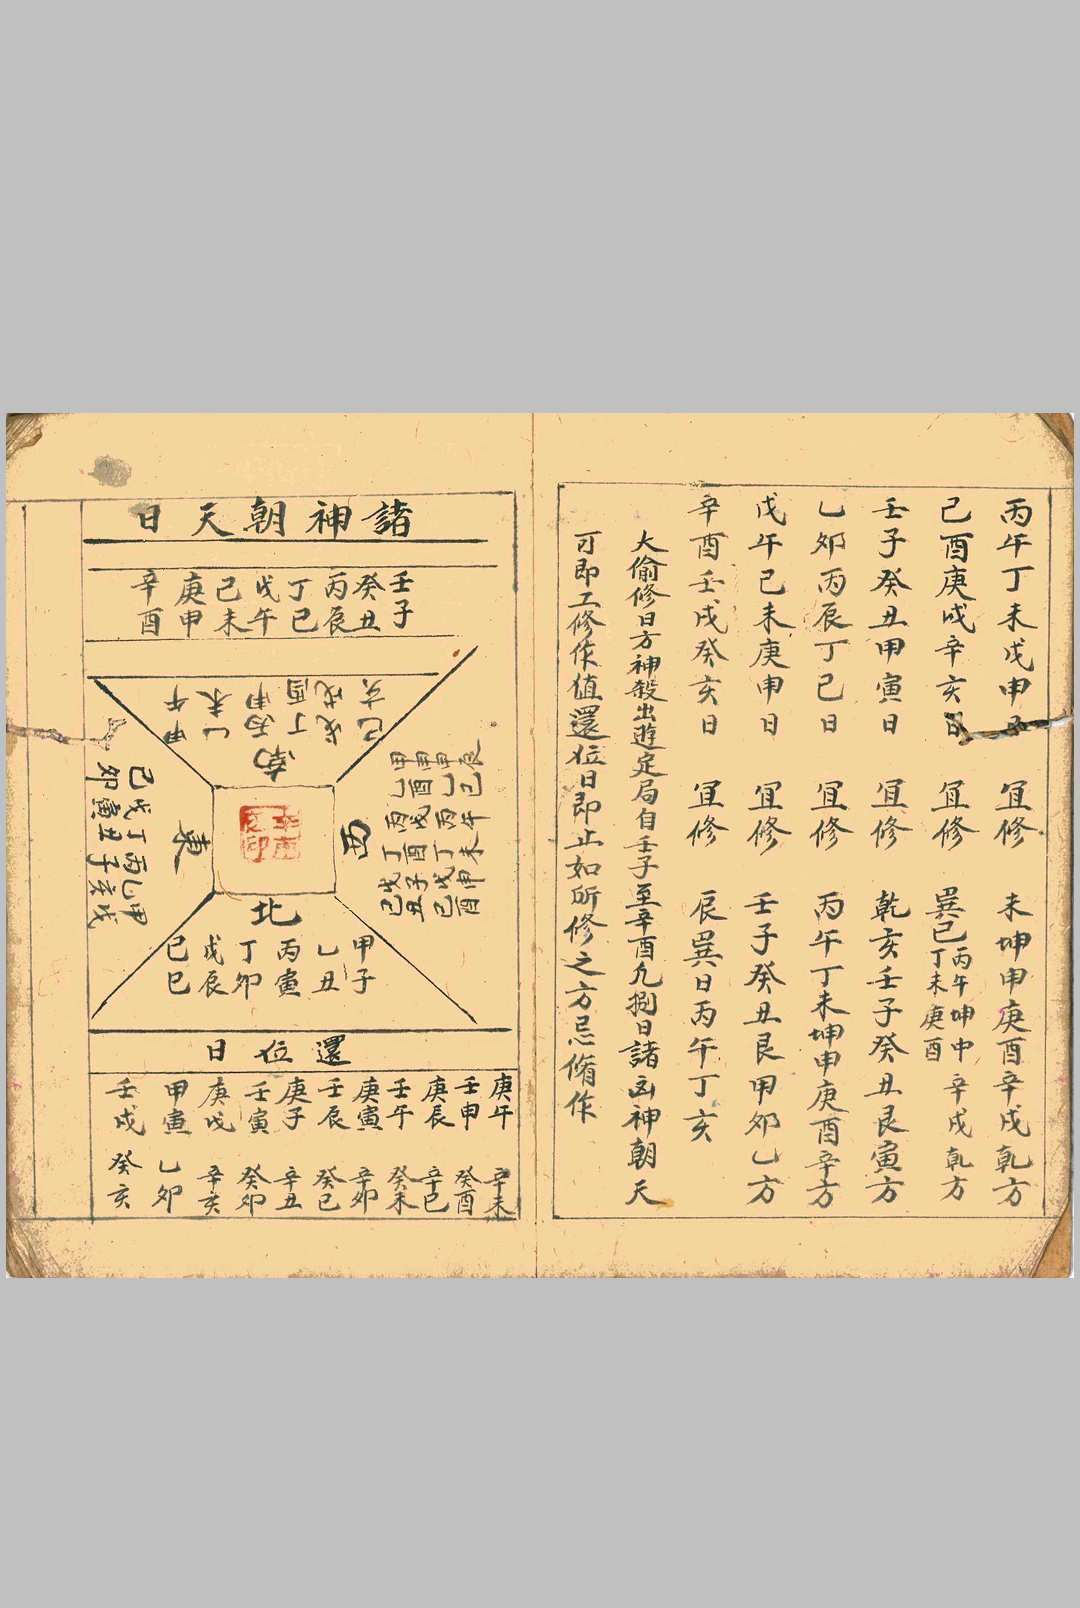 丙午丁未戊申日 宜修 未坤申庚酉辛戌乾方
己酉庚戌辛亥日 宜修 巽巳丙午丁未坤申庚酉辛戌乾方
壬子癸丑甲寅日 宜修 乾亥壬子癸丑艮寅方
乙卯丙辰丁巳日 宜修 丙午丁未坤申庚酉辛方
戊午己未庚申日 宜修 壬子癸丑艮甲卯乙方
辛酉壬戌癸亥日 宜修 辰巽日丙午丁亥
大偷修日方神殺出遊定局自壬子至辛酉凡捌日諸凶神朝天
可即工修作值還位日即止如所修之方忌脩作
諸神朝天日
壬子 癸丑 丙辰 丁巳 戊午 己未 庚申 辛酉
南
甲午 乙未 丙申 丁酉 戊戌 己亥
東
甲戌 乙亥 丙子 丁丑 戊寅 己卯
西
北
甲子 乙丑 丙寅 丁卯 戊辰 己巳
還位日
庚午 辛未
壬申 癸酉
庚辰 辛巳
壬午 癸未
庚寅 辛卯
壬辰 癸巳
庚子 辛丑
壬寅 癸卯
庚戌 辛亥
甲寅 乙卯
壬戌 癸亥